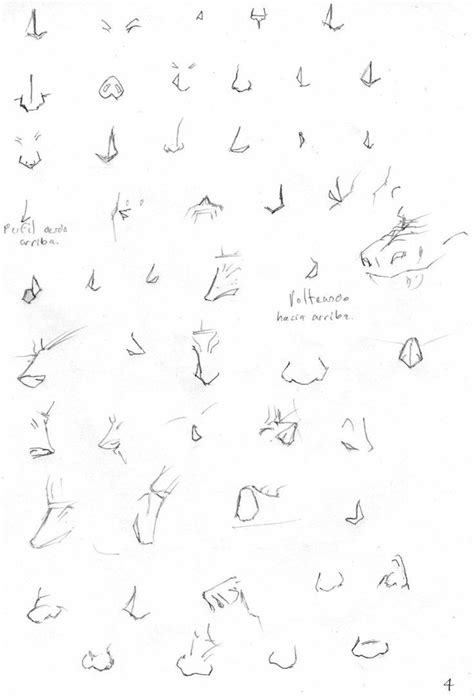 Perfil desde
arriba.
Volteando
hacia arriba.
4